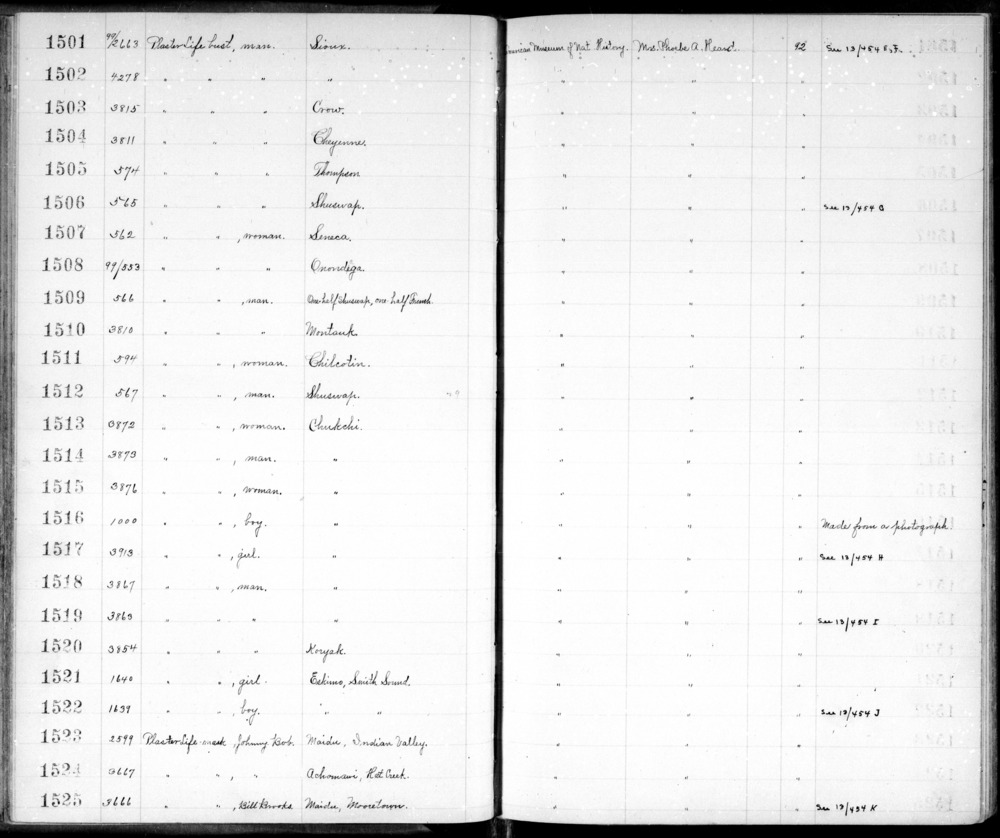 1501 99/2663 Plaster life bust, man. Sioux. American Museum of Nat. History. Mrs. Phoebe A. Hearst. 92 See 13/454 E, F.
1502 4278 " " " " " " "
1503 3815 " " " Crow. " " "
1504 3811 " " " Cheyenne. " " "
1505 574 " " " Thompson " " "
1506 565 " " " Shuswap. " " " See 13/454 G
1507 562 " " , woman. Seneca. " " "
1508 99/553 " " " Onondéga. " " "
1509 566 " " , man. One-half Shuswap, one-half French. " " "
1510 3810 " " " Montauk. " " "
1511 594 " " , woman. Chilcotin. " " "
1512 567 " " , man. Shuswap. " " "
1513 3872 " " , woman. Chukchi. " " "
1514 3873 " " , man. " " " "
1515 3876 " " , woman. " " " "
1516 1000 " " , boy. " " " " Made from a photograph
1517 3913 " " , girl. " " " " See 13/454 H
1518 3867 " " , man. " " " "
1519 3863 " " " " " " " See 13/454 I
1520 3854 " " " Koryak. " " "
1521 1640 " " , girl. Eskimo, Smith Sound. " " "
1522 1639 " " , boy. " " " " " See 13/454 J
1523 2599 Plaster life-mask, Johnny Bob. Maidu, Indian Valley. " " "
1524 3667 " " , " Achomawi, Hat Creek. " " "
1525 3666 " " , Bill Brooks Maidu, Mooretown. " " " See 13/454 K